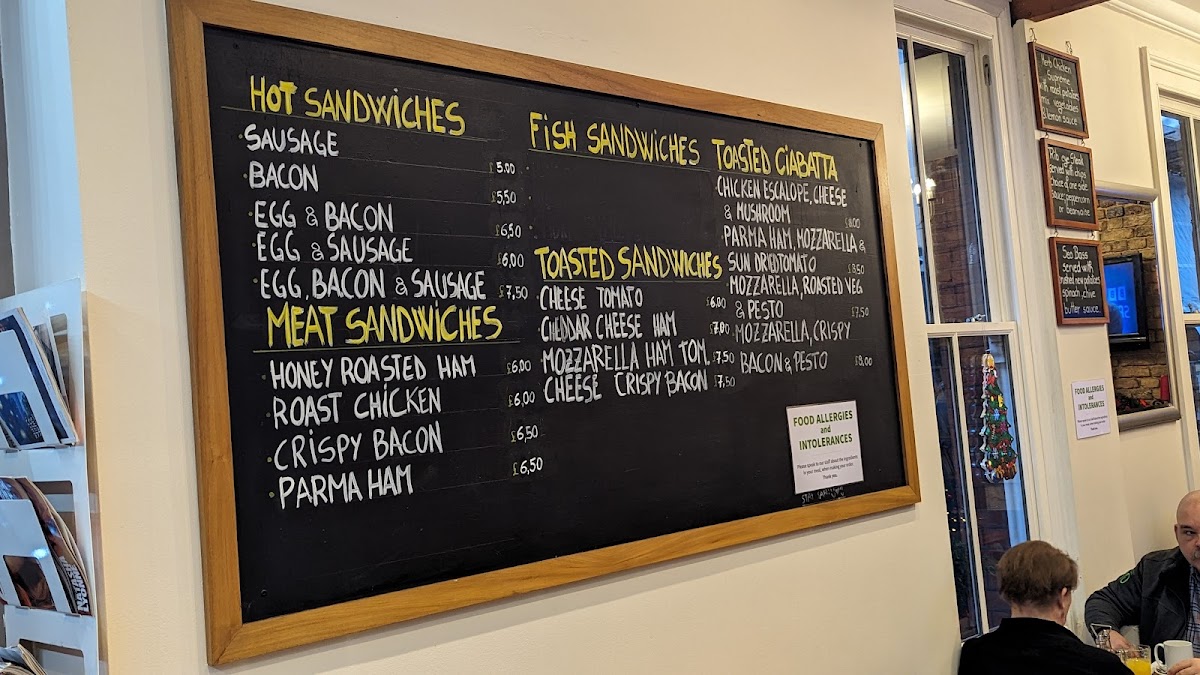 HOT SANDWICHES
SAUSAGE £5.00
BACON £5,50
EGG & BACON £6,50
EGG & SAUSAGE £6,00
EGG, BACON & SAUSAGE £7,50
MEAT SANDWICHES
HONEY ROASTED HAM £6,00
ROAST CHICKEN £6,00
CRISPY BACON £6,50
PARMA HAM £6,50
FISH SANDWICHES
TOASTED SANDWICHES
CHEESE TOMATO £6,00
CHEDDAR CHEESE HAM £7,00
MOZZARELLA HAM TOM. £7,50
CHEESE CRISPY BACON £7,50
TOASTED CIABATTA
CHICKEN ESCALOPE, CHEESE
& MUSHROOM
PARMA HAM, MOZZARELLA &
SUN DRIED TOMATO £8,50
MOZZARELLA, ROASTED VEG
& PESTO £7,50
MOZZARELLA, CRISPY
BACON & PESTO £8,00
FOOD ALLERGIES
and
INTOLERANCES
Please speak to our staff about the ingredients
in your meal, when making your order.
Thank you.
Herb Chicken
Supreme
with roast potatoes
mix vegetables
& lemon sauce
Rib eye Steak
Served with chips
Choice of one side
Sauce: peppercorn
or bearnaise
Sea Bass
served with
roasted new potatoes
spinach, chive
butter sauce
FOOD ALLERGIES
and
INTOLERANCES